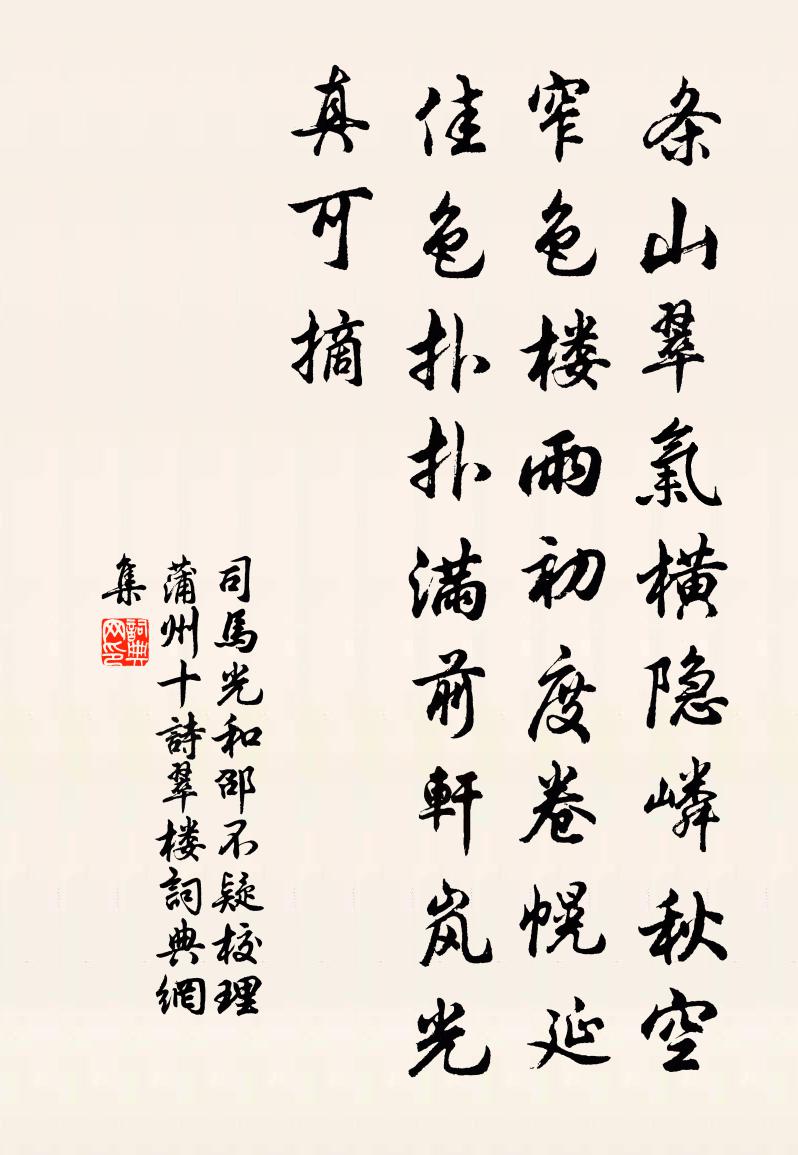 条山翠氣横隐嶙秋空
窄色楼雨初度卷幌延
佳色扑扑满前軒岚光
真可摘
司馬光和邵不疑校理
蒲州十詩翠楼詞典網
集
詞典网印